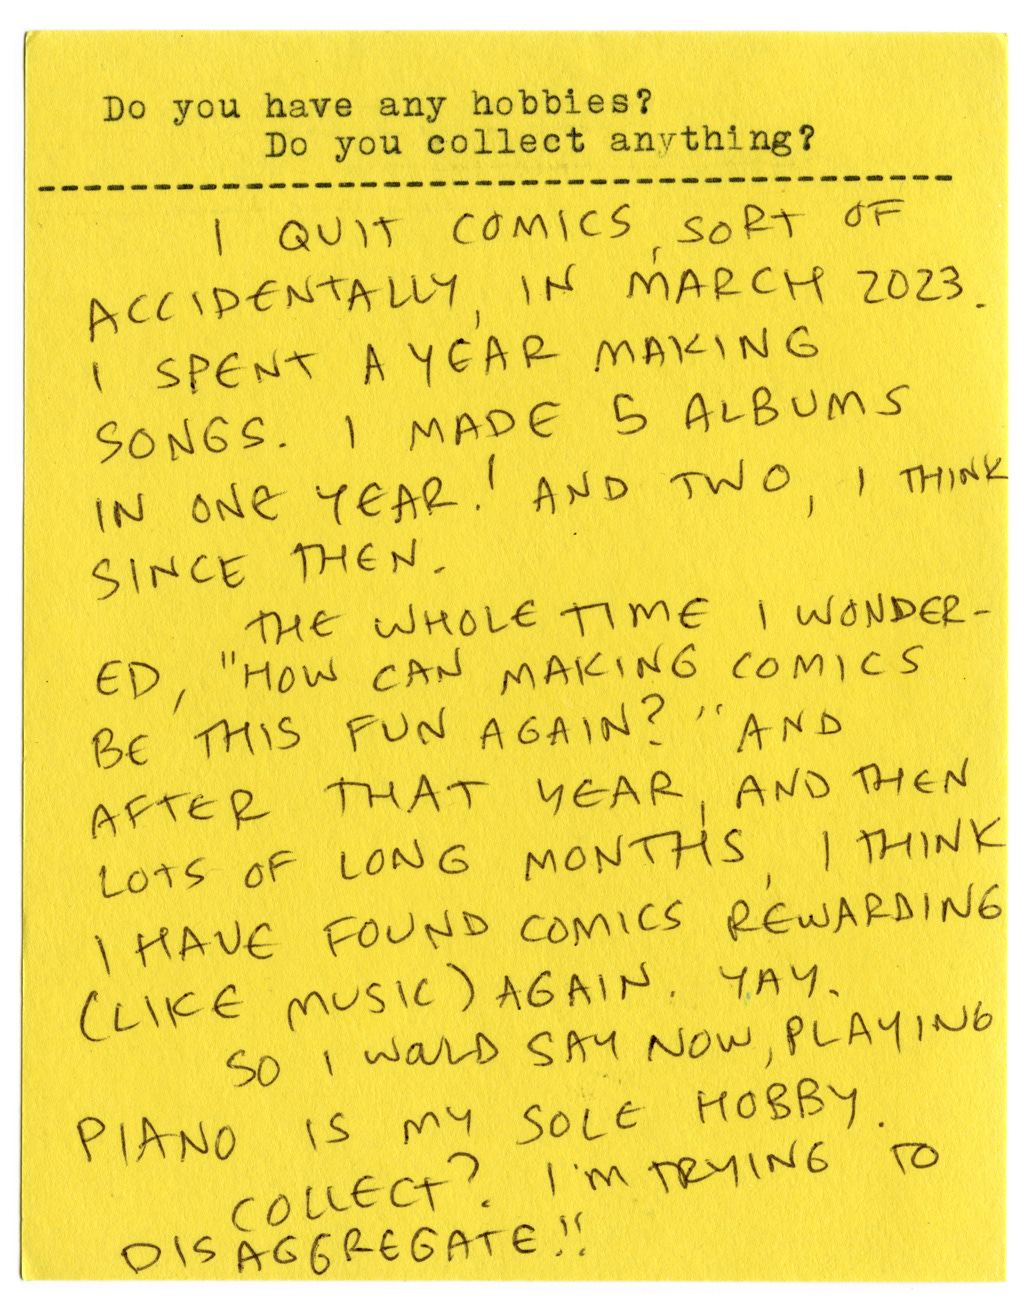 Do you have any hobbies?
Do you collect anything?
I QUIT COMICS, SORT OF
ACCIDENTALLY, IN MARCH 2023.
I SPENT A YEAR MAKING
SONGS. I MADE 5 ALBUMS
IN ONE YEAR! AND TWO, I THINK
SINCE THEN.
THE WHOLE TIME I WONDER-
ED, "HOW CAN MAKING COMICS
BE THIS FUN AGAIN?" AND
AFTER THAT YEAR, AND THEN
LOTS OF LONG MONTHS, I THINK
I HAVE FOUND COMICS REWARDING
(LIKE MUSIC) AGAIN. YAY.
SO I WOULD SAY NOW, PLAYING
PIANO IS MY SOLE HOBBY.
COLLECT? I'M TRYING TO
DISAGGREGATE!!